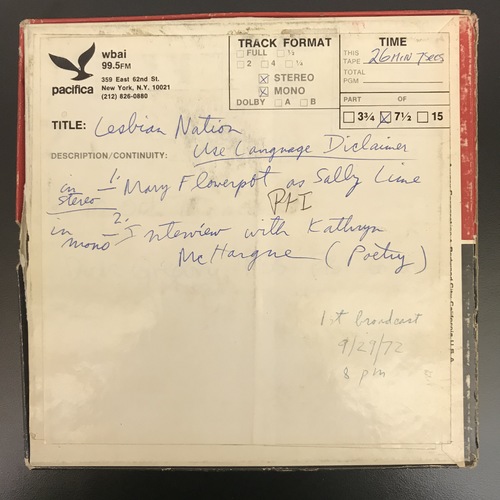 wbai
99.5FM
359 East 62nd St.
New York, N.Y. 10021
(212) 826-0880
pacifica
TRACK FORMAT
FULL ½
2 4 ¼
STEREO
MONO
DOLBY A B
TIME
THIS TAPE 26 MIN 7 SECS
TOTAL PGM
PART OF
3¾ 7½ 15
TITLE: Lesbian Nation
Use Language Diclaimer
DESCRIPTION/CONTINUITY:
in stereo 1. Mary Flowerpot as Sally Lime
Pt I
in mono 2. Interview with Kathryn
McHargue (Poetry)
1st broadcast
9/29/72
8 pm